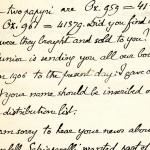 - two papyri are Ox. 959 = 41
Ox. 967 = 41879. Did you find
were they bought and sold to you?
union is sending you all our boo
m 1906 to the present day; I gave o
t your name should be inserted o
distribution list.
am sorry to hear your news abou
wanted part of